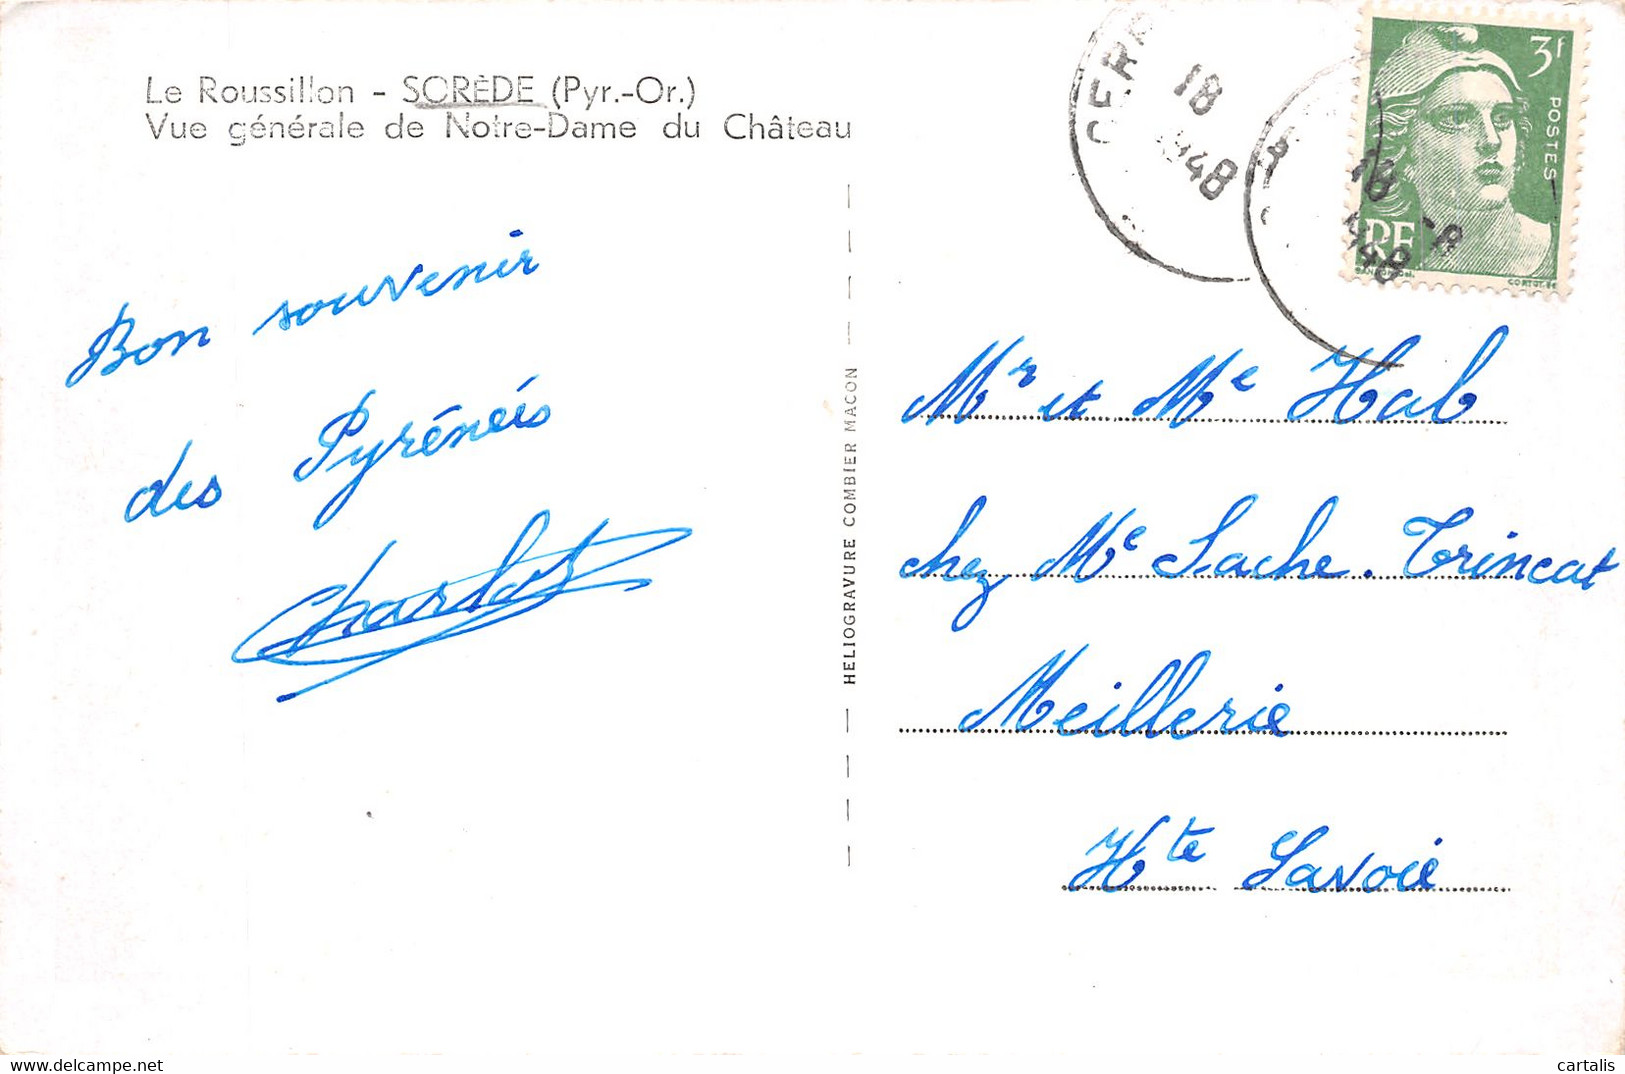 Le Roussillon - SORÈDE (Pyr.-Or.)
Vue générale de Notre-Dame du Château
Bon souvenir
des Pyrénéés
Charlot
HELIOGRAVURE COMBIER MACON
CER
18
1948
18
-8
1948
3f
POSTES
RF
GANDON
CORTOT
Mr et Me Hab
chez Me Sache. Trincat
Meillerie
Hte Savoie
cartalis